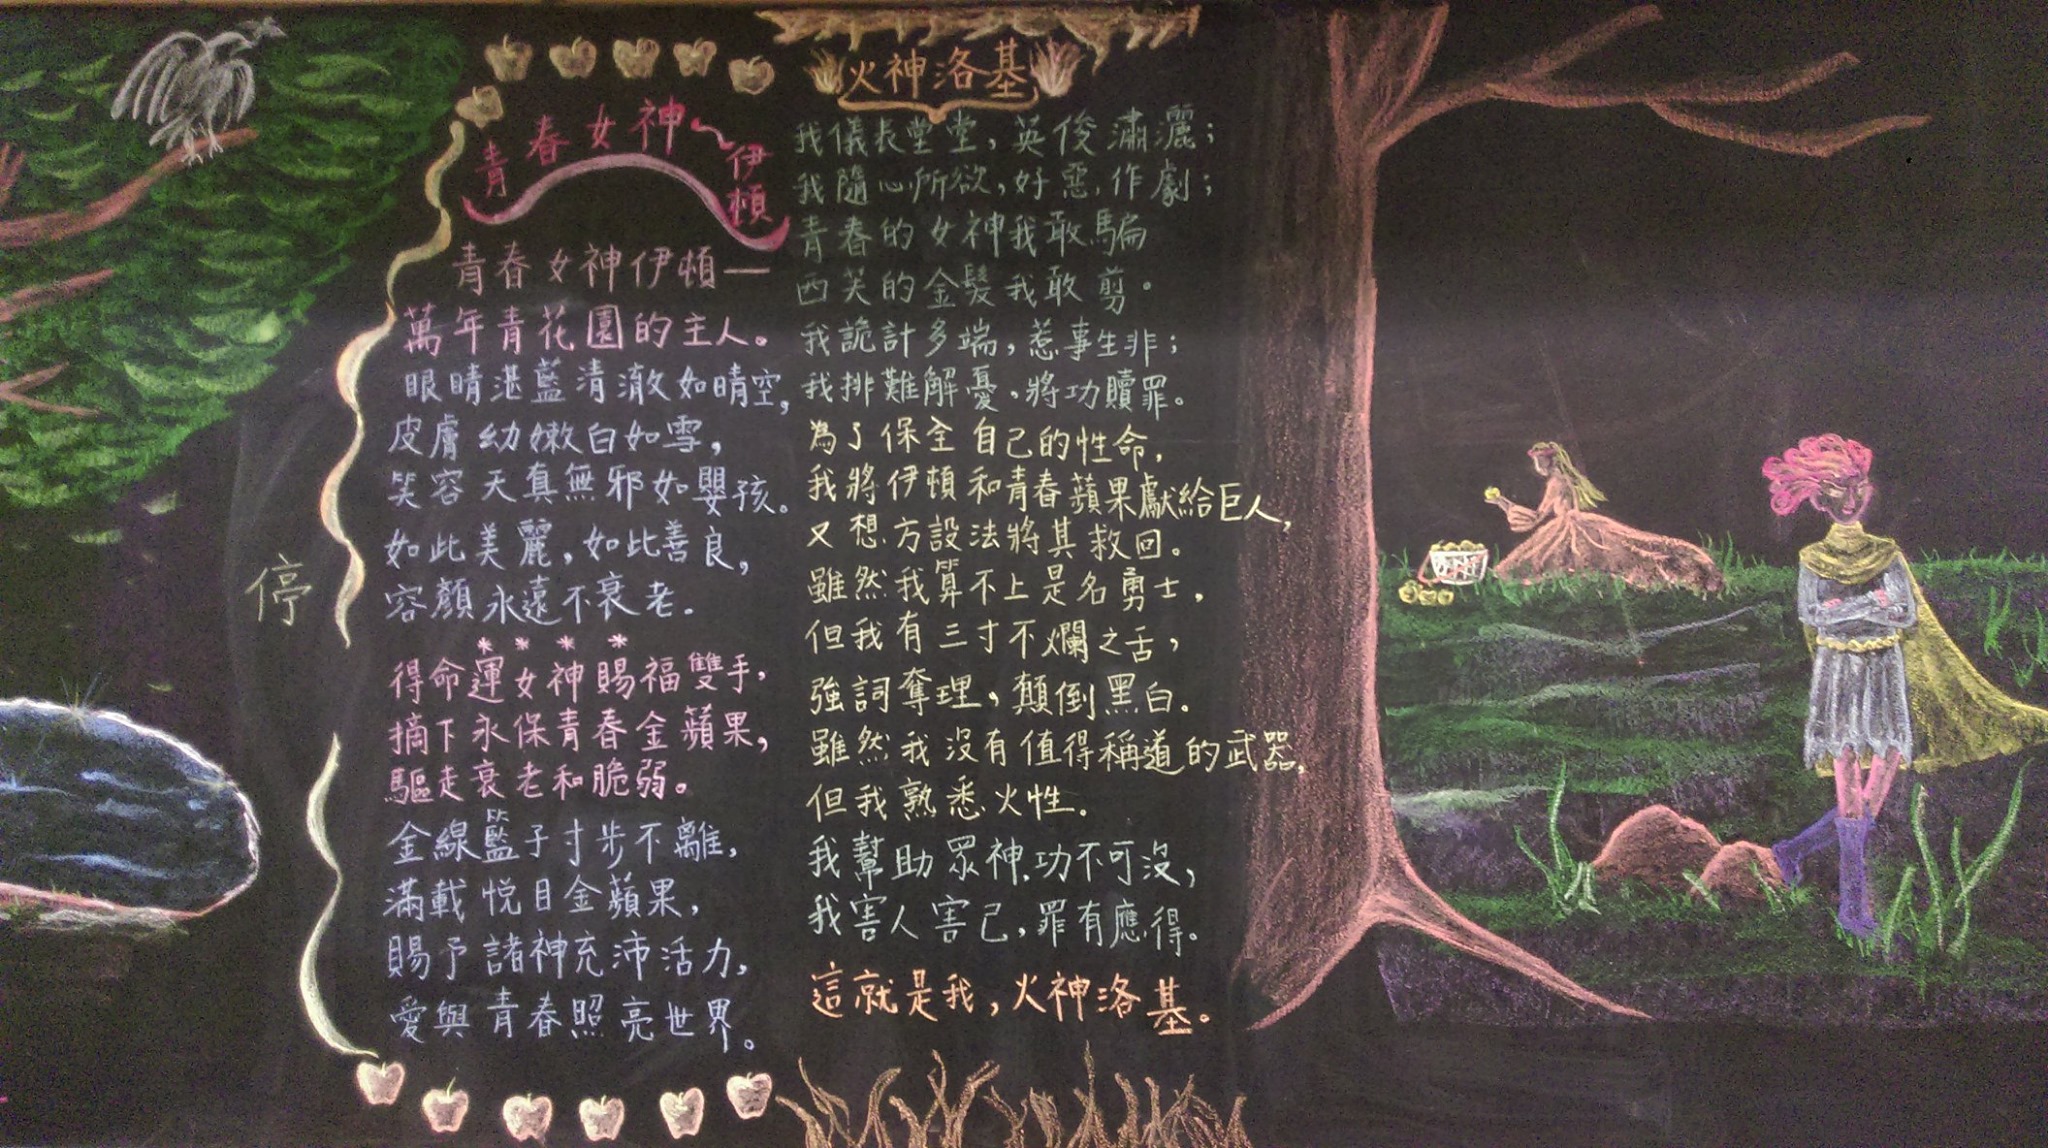 停
青春女神~伊頓
青春女神伊頓—
萬年青花園的主人。
眼睛湛藍清澈如晴空,
皮膚幼嫩白如雪,
笑容天真無邪如嬰孩。
如此美麗,如此善良,
容顏永遠不衰老.
* * * *
得命運女神賜福雙手,
摘下永保青春金蘋果,
驅走衰老和脆弱。
金線籃子寸步不離,
滿載悅目金蘋果,
賜予諸神充沛活力,
愛與青春照亮世界。
火神洛基
我儀表堂堂,英俊瀟灑;
我隨心所欲,好惡作劇;
青春的女神我敢騙
西芙的金髮我敢剪。
我詭計多端,惹事生非;
我排難解憂,將功贖罪。
為了保全自己的性命,
我將伊頓和青春蘋果獻給巨人,
又想方設法將其救回。
雖然我算不上是名勇士,
但我有三寸不爛之舌,
強詞奪理,顛倒黑白。
雖然我沒有值得稱道的武器,
但我熟悉火性.
我幫助眾神,功不可沒,
我害人害己,罪有應得。
這就是我,火神洛基。